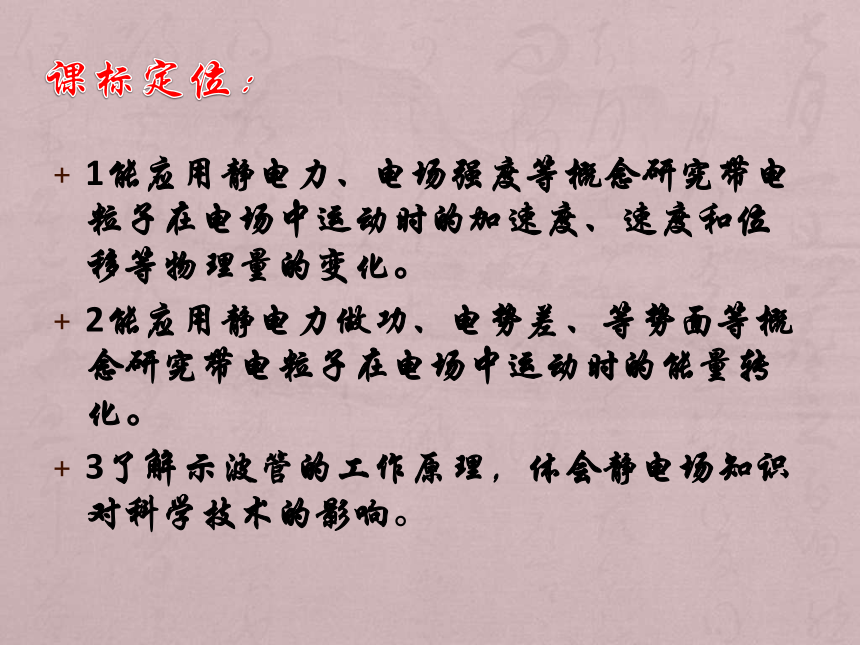 课标定位：
+ 1能应用静电力、电场强度等概念研究带电
粒子在电场中运动时的加速度、速度和位
移等物理量的变化。
+ 2能应用静电力做功、电势差、等势面等概
念研究带电粒子在电场中运动时的能量转
化。
+ 3了解示波管的工作原理，体会静电场知识
对科学技术的影响。